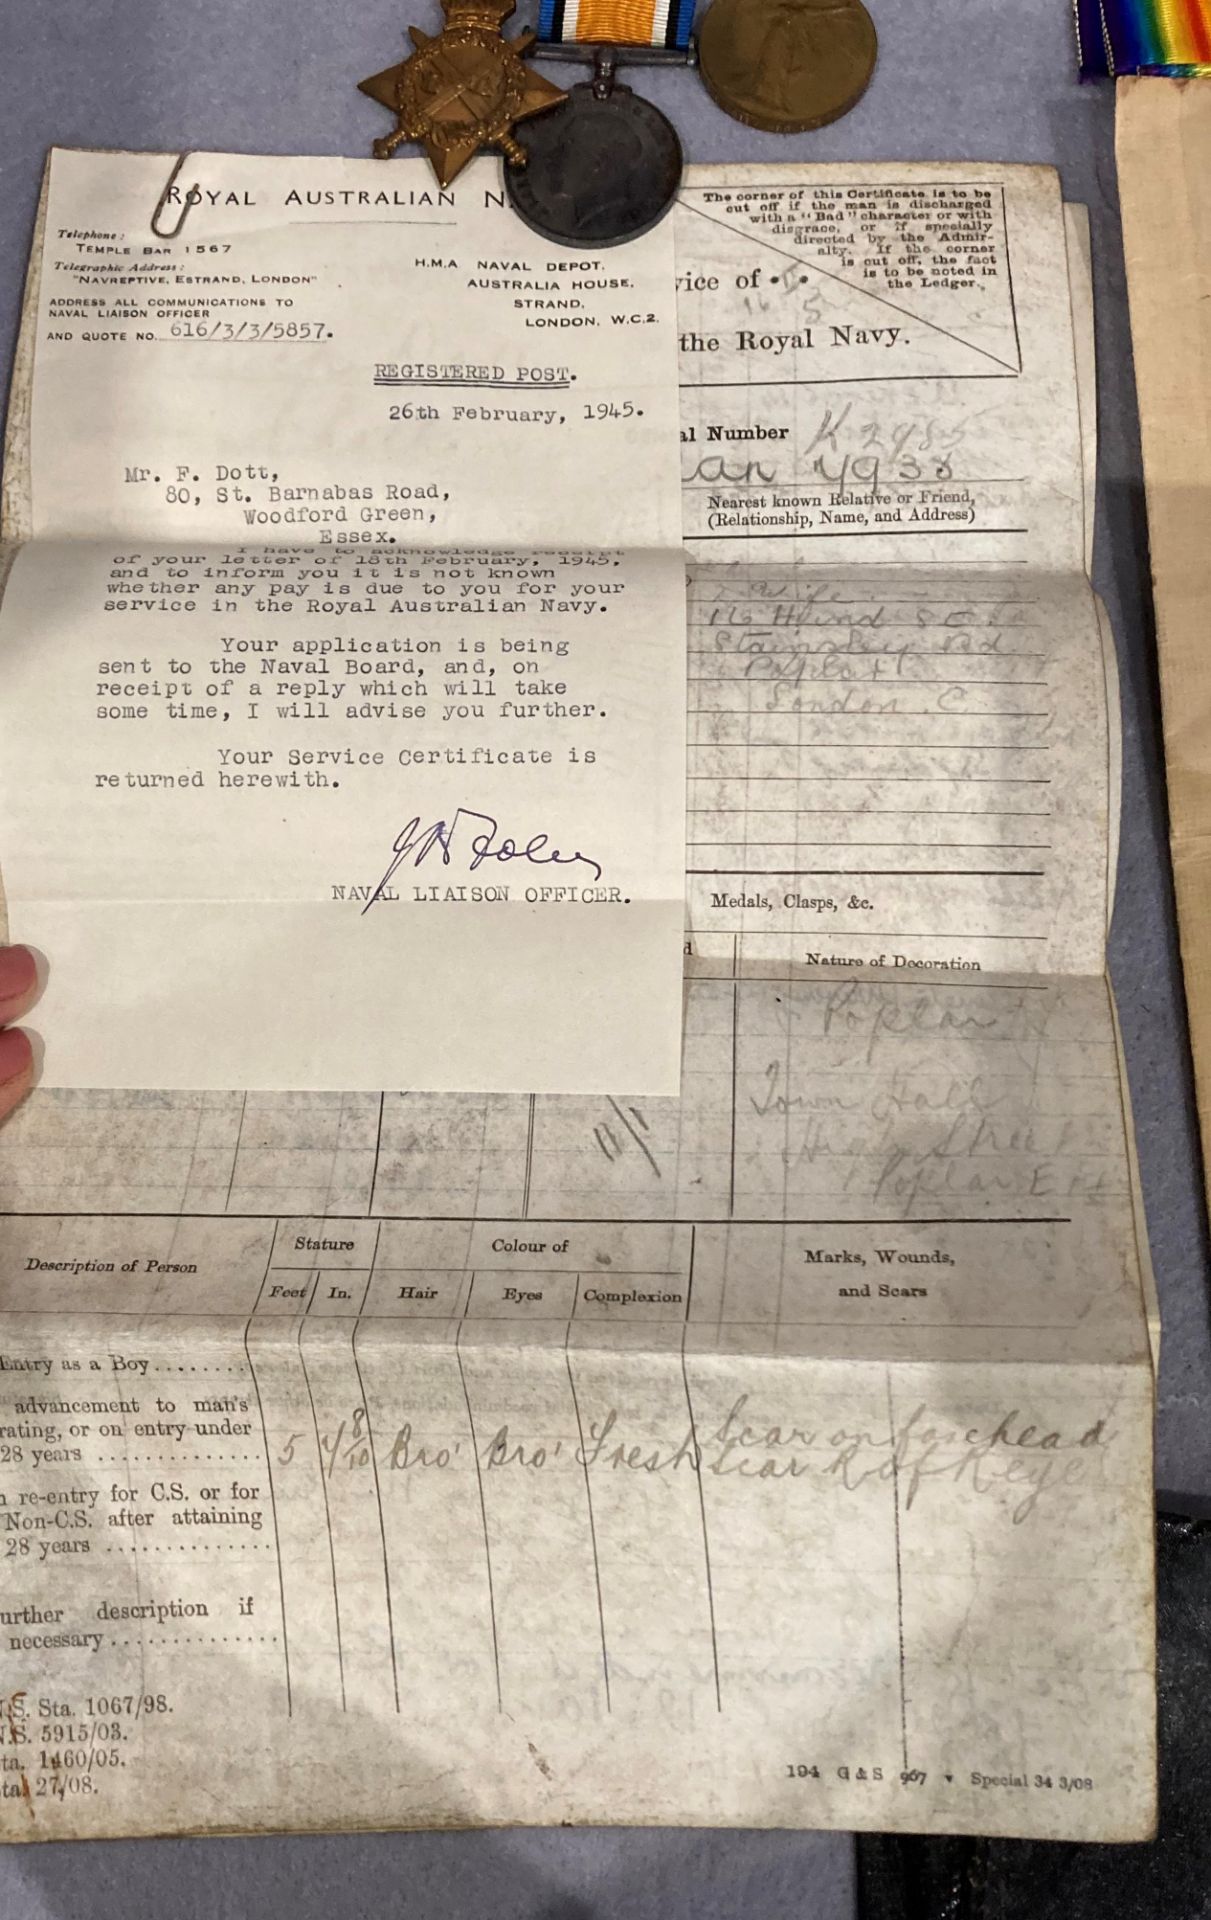 ROYAL AUSTRALIAN N
Telephone:
TEMPLE BAR 1567
Telegraphic Address:
"NAVREPTIVE, ESTRAND, LONDON"
ADDRESS ALL COMMUNICATIONS TO
NAVAL LIAISON OFFICER
AND QUOTE NO. 616/3/3/5857.
H.M.A NAVAL DEPOT,
AUSTRALIA HOUSE,
STRAND,
LONDON, W.C.2.
REGISTERED POST.
26th February, 1945.
Mr. F. Dott,
80, St. Barnabas Road,
Woodford Green,
Essex.
I have to acknowledge receipt
of your letter of 18th February, 1945,
and to inform you it is not known
whether any pay is due to you for your
service in the Royal Australian Navy.
Your application is being
sent to the Naval Board, and, on
receipt of a reply which will take
some time, I will advise you further.
Your Service Certificate is
returned herewith.
NAVAL LIAISON OFFICER.
The corner of this Certificate is to be
cut off if the man is discharged
with a "Bad" character or with
disgrace, or if specially
directed by the Admir-
alty. If the corner
is cut off, the fact
is to be noted in
the Ledger.
vice of
the Royal Navy.
al Number K 2985
Nearest known Relative or Friend,
(Relationship, Name, and Address)
Wife
Stainsley Rd
Poplar
London. E
Medals, Clasps, &c.
d
Nature of Decoration
Poplar
Town Hall
High Street
Poplar E 14
Description of Person
Stature
Feet In.
Colour of
Hair Eyes Complexion
Marks, Wounds,
and Scars
Entry as a Boy........
advancement to man's
rating, or on entry under
28 years .............. 5 4 8/10 Bro' Bro' Fresh Scar on forehead
Scar R of R eye
n re-entry for C.S. or for
Non-C.S. after attaining
28 years ..............
urther description if
necessary ..............
N.S. Sta. 1067/98.
N.S. 5915/03.
ta. 1460/05.
ta. 27/08.
194 G & S 967 Special 34 3/08